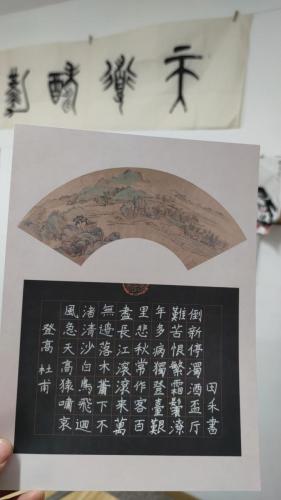 天道酬勤
登高 杜甫
風急天高猿嘯哀
渚清沙白鳥飛迴
無邊落木蕭下不
盡長江滾滾來萬
里悲秋常作客百
年多病獨登臺艱
難苦恨繁霜鬢潦
倒新停濁酒盃斤
田禾書